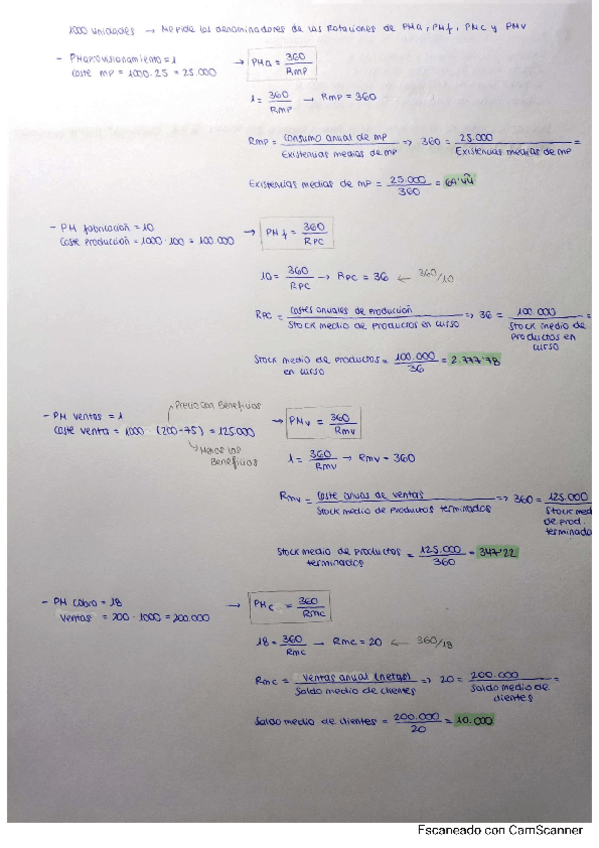 1000 unidades → Me pide los denominadores de las Rotaciones de PMa, PMf, PMc y PMv
- PM aprovisionamiento = 1 → PMa = 360 / Rmp
Coste mp = 1000 · 25 = 25.000
1 = 360 / Rmp → Rmp = 360
Rmp = Consumo anual de mp / Existencias medias de mp => 360 = 25.000 / Existencias medias de mp =
Existencias medias de mp = 25.000 / 360 = 69'44
- PM fabricación = 10 → PMf = 360 / Rpc
Coste producción = 1000 · 100 = 100.000
10 = 360 / Rpc → Rpc = 36 ← 360/10
Rpc = Costes anuales de producción / Stock medio de productos en curso => 36 = 100.000 / Stock medio de productos en curso =
Stock medio de productos en curso = 100.000 / 36 = 2.777'78
Precio con Beneficios
- PM ventas = 1 → PMv = 360 / Rmv
Coste venta = 1000 · (200-75) = 125.000
Menos los Beneficios
1 = 360 / Rmv → Rmv = 360
Rmv = Coste anual de ventas / Stock medio de Productos terminados => 360 = 125.000 / Stock med de prod. terminado
Stock medio de Productos terminados = 125.000 / 360 = 347'22
- PM cobro = 18 → PMc = 360 / Rmc
Ventas = 200 · 1000 = 200.000
18 = 360 / Rmc → Rmc = 20 ← 360/18
Rmc = Ventas anual (netas) / Saldo medio de clientes => 20 = 200.000 / Saldo medio de clientes =
Saldo medio de clientes = 200.000 / 20 = 10.000
Escaneado con CamScanner